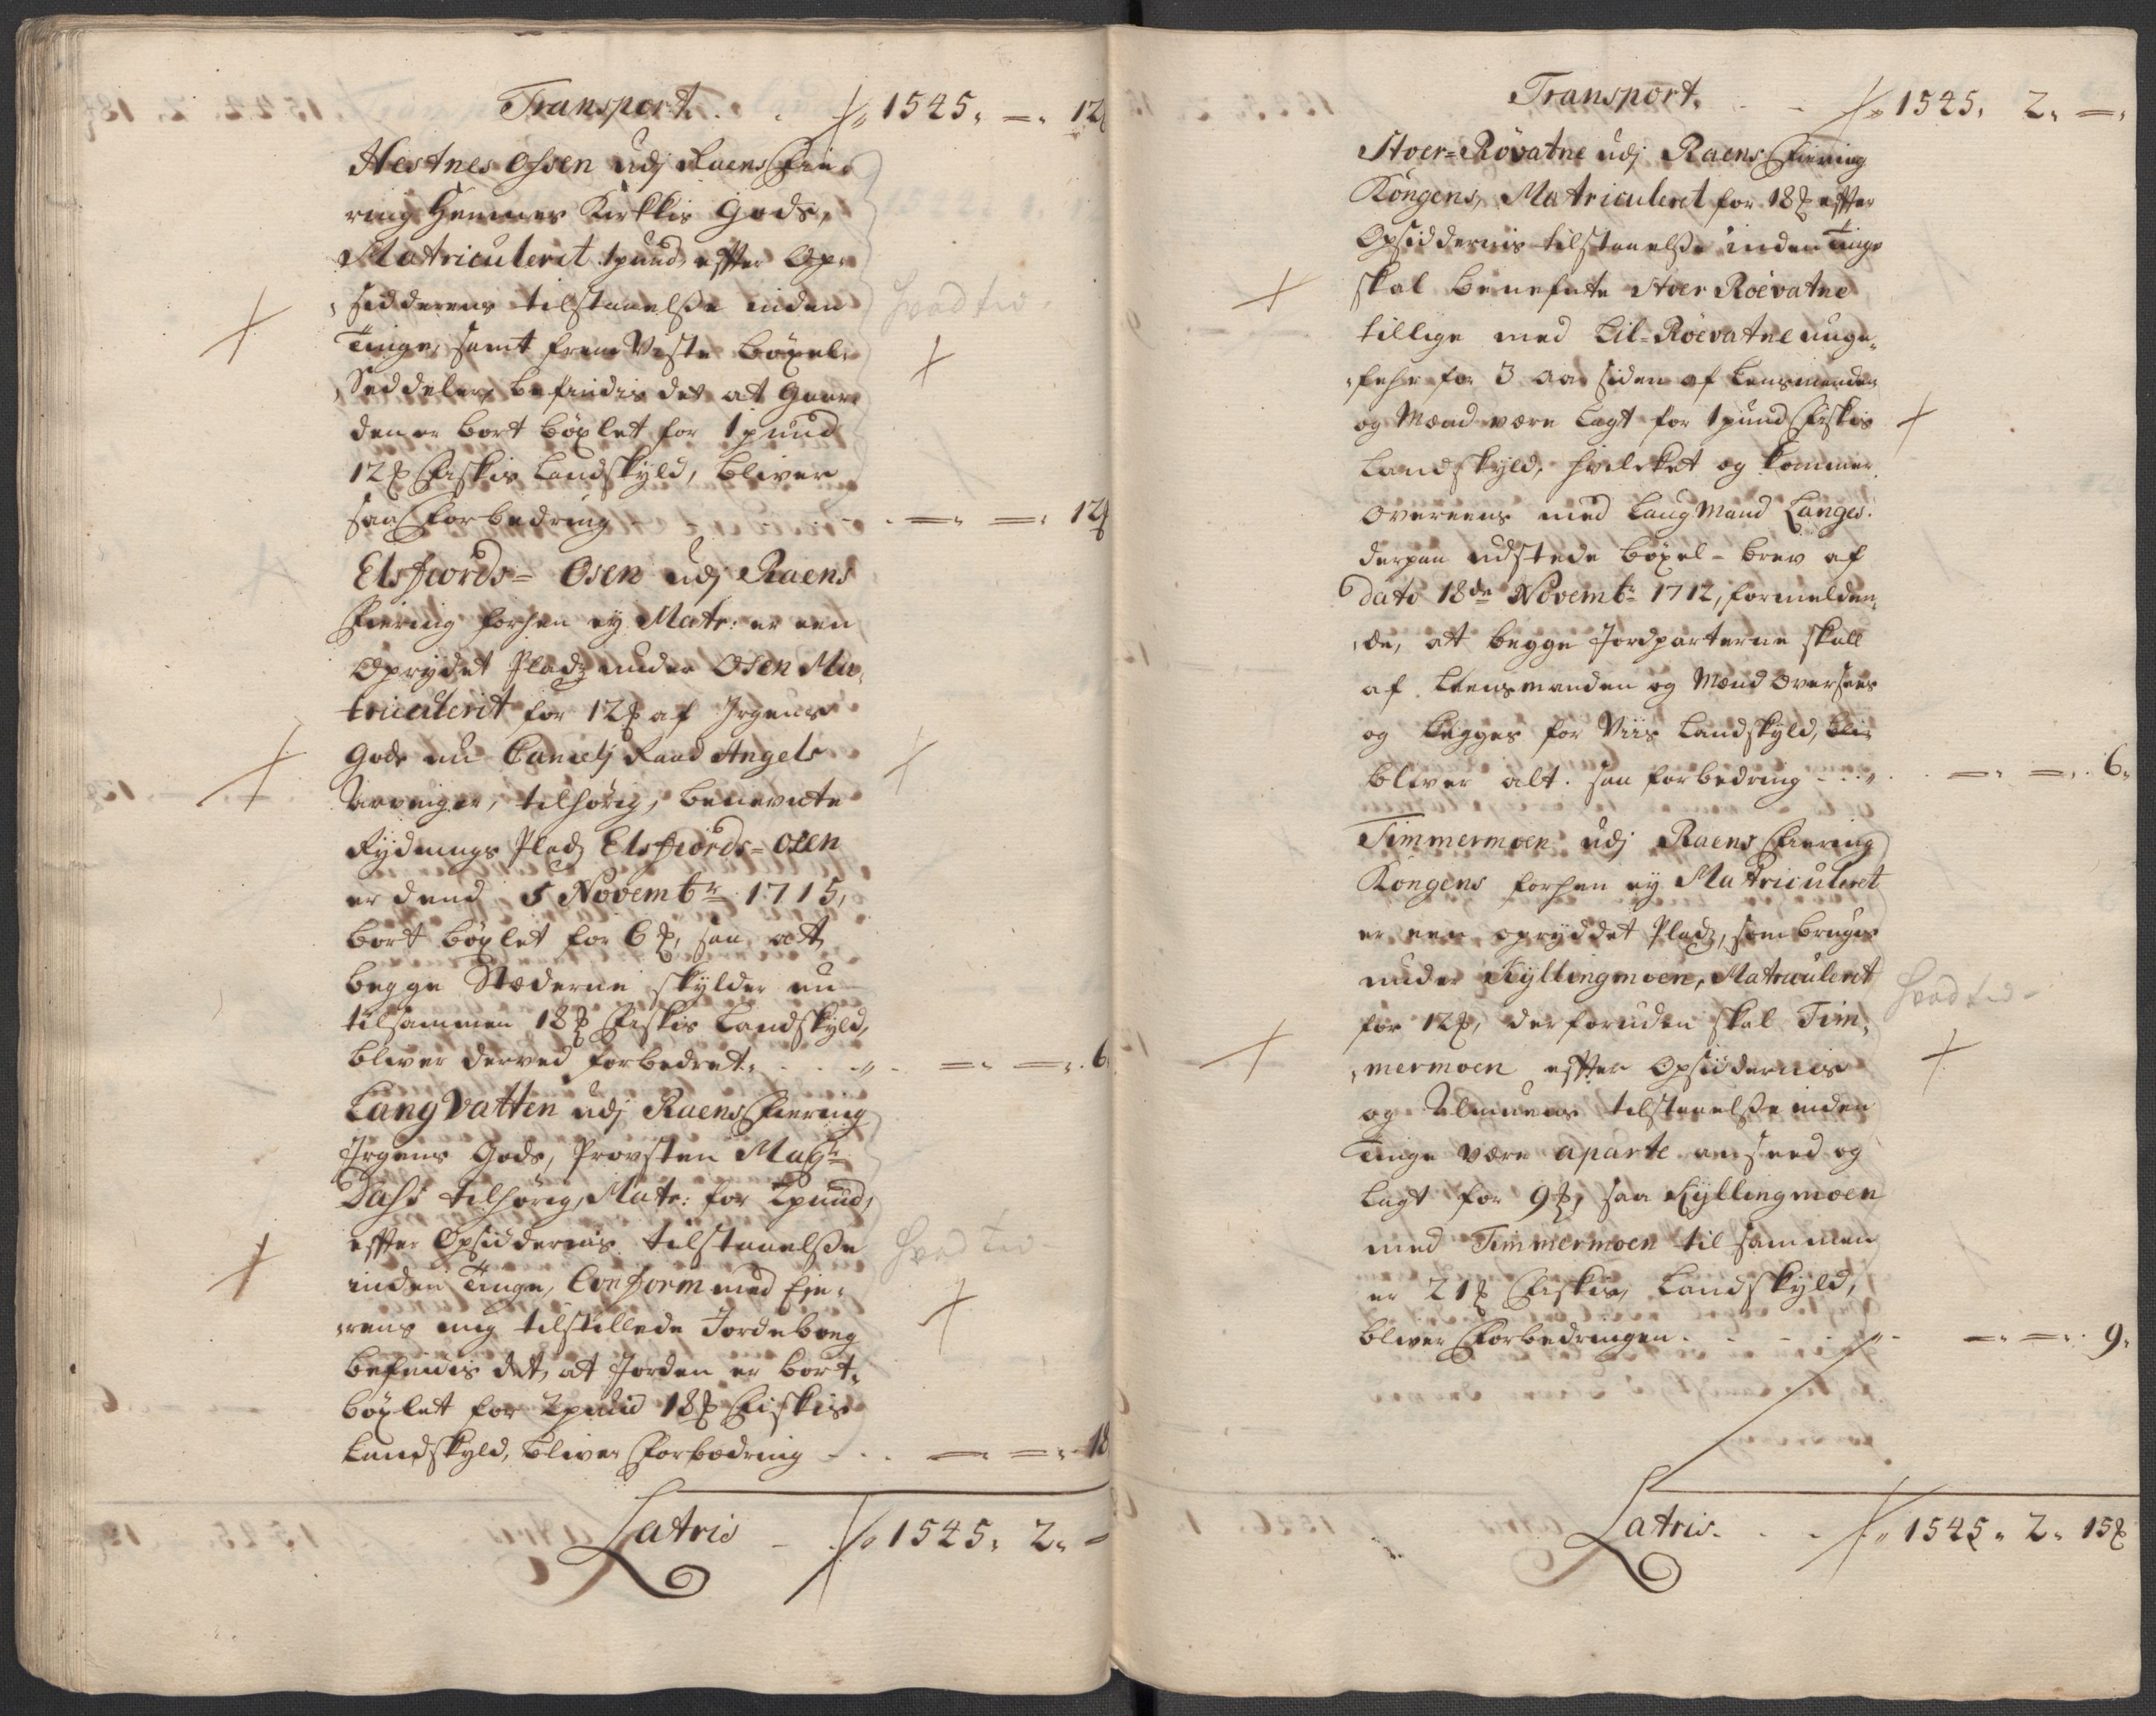 Transport. . . ₰ 1545. =. 12
Hestnes Ossen udj Raens Fie-
ring Hemnes Kirkkis Gods,
Matriculerit 1 pund, efter Op-
sidderens tilstaaelsse inden
Tinge, samt frem Viste böxel
Seddeler, befindis det at Gaar-
den er bort böxlet for 1 pund
12 ℔ Fiskis Landskyld, bliver
saa Forbedring . =. =. 12
hvad tid
Elsfiords= Osen udj Raens
Fiering forhen ey Matr: er een
Oprydet Pladz under Osen Ma-
triculerit for 12 ℔ af Irgens
Gods nu Cancelj Raad Angels
Arvinger, tilhörig, benevnte
Rydnings Pladz Elsfiords=Osen
er dend 5 Novembr 1715,
bort böxlet for 6 ℔, saa att
begge Stæderne skylder nu
tilsammen 18 ℔ Fiskis Landskyld,
bliver derved forbedret. . . . =. =. 6
Lang Vatten udj Raens Fiering
Irgens Gods, Provsten Magr
Dass tilhörig, Matr: for 2 pund,
efter Opsiddernis tilstaaelsse
hvad tid
inden Tinge, Conform med Eje-
rens mig tilstillede Jordeboeg
befindis det, at Jorden er bort-
böxlet for 2 pund 18 ℔ Fiskis
Landskyld, bliver Forbedring . . =. =. 18
Latris . ₰ 1545. 2. =
Transport. . . ₰ 1545. 2. =.
Stoer=Rövatne udj Raens Fiering
Kongens, Matriculeret for 18 ℔ efter
Opsiddernis tilstaaelsse inden Tinge
skal benefnte Stoer Röevatne
tillige med Lil=Röevatne unge-
fehr for 3 aar siden af Lensmanden
og Mænd være lagt for 1 pund Fiskis
Landskyld, hvilcket og kommer
overeens med Laugmand Langes
derpaa udstede böxel=brev af
dato 18de Novembr 1712, formelden-
de, att begge Jordparterne skall
af Leensmanden og Mænd oversees
og legges for Viis Landskyld, bli-
bliver alt saa forbedring . . . =. =. 6.
Timmermoen udj Raens Fiering
Kongens forhen ey Matriculeret
er een opryddet Pladz, som bruges
under Kyllingmoen, Matriculerit
hvad tid
for 12 ℔, derforuden skal Tim-
mermoen efter Opsiddernis
og Almuens tilstaaelsse inden
Tinge være aparte anseed og
lagt for 9 ℔, saa Kyllingmoen
med Timmermoen til sammen
er 21 ℔ Fiskis, Landskyld,
bliver Forbedringen . . . =. =. 9.
Latris. . . ₰ 1545. 2. 15 ℔